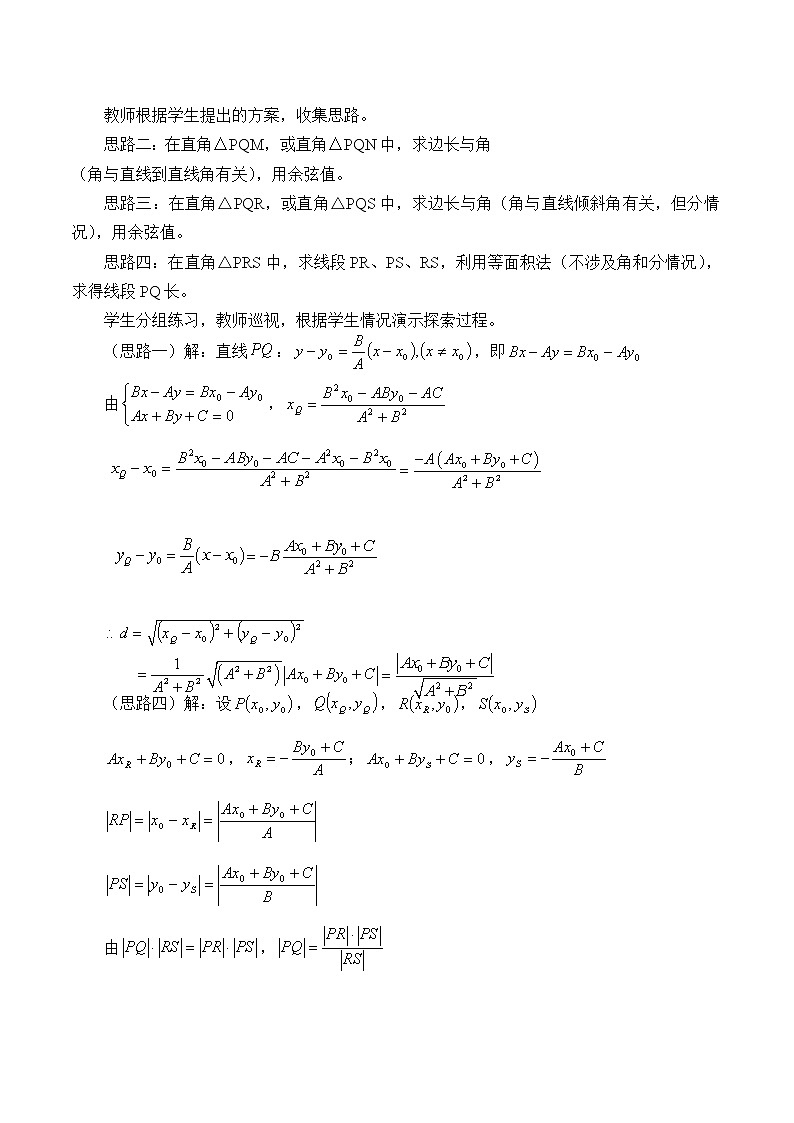 教师根据学生提出的方案，收集思路。
思路二：在直角△PQM，或直角△PQN中，求边长与角
（角与直线到直线角有关），用余弦值。
思路三：在直角△PQR，或直角△PQS中，求边长与角（角与直线倾斜角有关，但分情
况），用余弦值。
思路四：在直角△PRS中，求线段PR、PS、RS，利用等面积法（不涉及角和分情况），
求得线段PQ长。
学生分组练习，教师巡视，根据学生情况演示探索过程。
（思路一）解：直线 $PQ$： $y-y_0=\frac{B}{A}(x-x_0),(x\neq x_0)$，即 $Bx-Ay=Bx_0-Ay_0$
由 $\begin{cases}Bx-Ay=Bx_0-Ay_0\\Ax+By+C=0\end{cases}$， $x_Q=\frac{B^2x_0-ABy_0-AC}{A^2+B^2}$
$x_Q-x_0=\frac{B^2x_0-ABy_0-AC-A^2x_0-B^2x_0}{A^2+B^2}=\frac{-A(Ax_0+By_0+C)}{A^2+B^2}$
$y_Q-y_0=\frac{B}{A}(x-x_0)=-B\frac{Ax_0+By_0+C}{A^2+B^2}$
$\therefore d=\sqrt{(x_Q-x_0)^2+(y_Q-y_0)^2}$
$=\frac{1}{A^2+B^2}\sqrt{(A^2+B^2)}|Ax_0+By_0+C|=\frac{|Ax_0+By_0+C|}{\sqrt{A^2+B^2}}$
（思路四）解：设 $P(x_0,y_0)$， $Q(x_Q,y_Q)$， $R(x_R,y_0)$， $S(x_0,y_S)$
$Ax_R+By_0+C=0$， $x_R=-\frac{By_0+C}{A}$； $Ax_0+By_S+C=0$， $y_S=-\frac{Ax_0+C}{B}$
$|RP|=|x_0-x_R|=\left|\frac{Ax_0+By_0+C}{A}\right|$
$|PS|=|y_0-y_S|=\left|\frac{Ax_0+By_0+C}{B}\right|$
由 $|PQ|\cdot|RS|=|PR|\cdot|PS|$， $|PQ|=\frac{|PR|\cdot|PS|}{|RS|}$